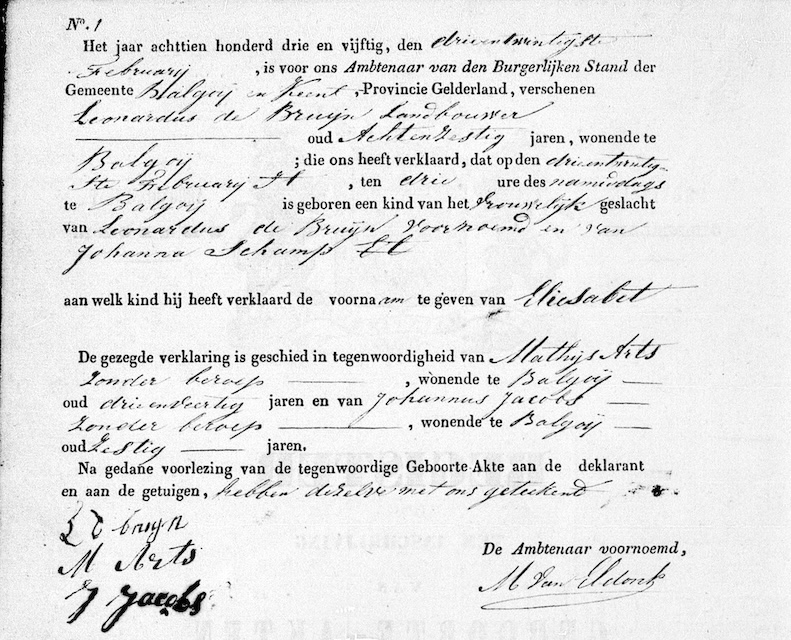 No. 1
Het jaar achttien honderd drie en vijftig, den drieentwintigste
Februarij , is voor ons Ambtenaar van den Burgerlijken Stand der
Gemeente Balgoij en Keent , Provincie Gelderland, verschenen
Leonardus de Bruijn Landbouwer
oud Achtenzestig jaren, wonende te
Balgoij ; die ons heeft verklaard, dat op den drieentwintig-
ste Februarij , ten drie ure des namiddags
te Balgoij is geboren een kind van het Vrouwelijk geslacht
van Leonardus de Bruijn voornoemd en van
Johanna Schamp
aan welk kind hij heeft verklaard de voornaam te geven van Eliesabet
De gezegde verklaring is geschied in tegenwoordigheid van Mathijs Arts
Zonder beroep , wonende te Balgoij
oud drieenveertig jaren en van Johannus Jacobs
Zonder beroep , wonende te Balgoij
oud Zestig jaren.
Na gedane voorlezing van de tegenwoordige Geboorte Akte aan de deklarant
en aan de getuigen, hebben dezelve met ons geteekend
L D bruyn
M Arts
J Jacobs
De Ambtenaar voornoemd,
M Van Eldonk